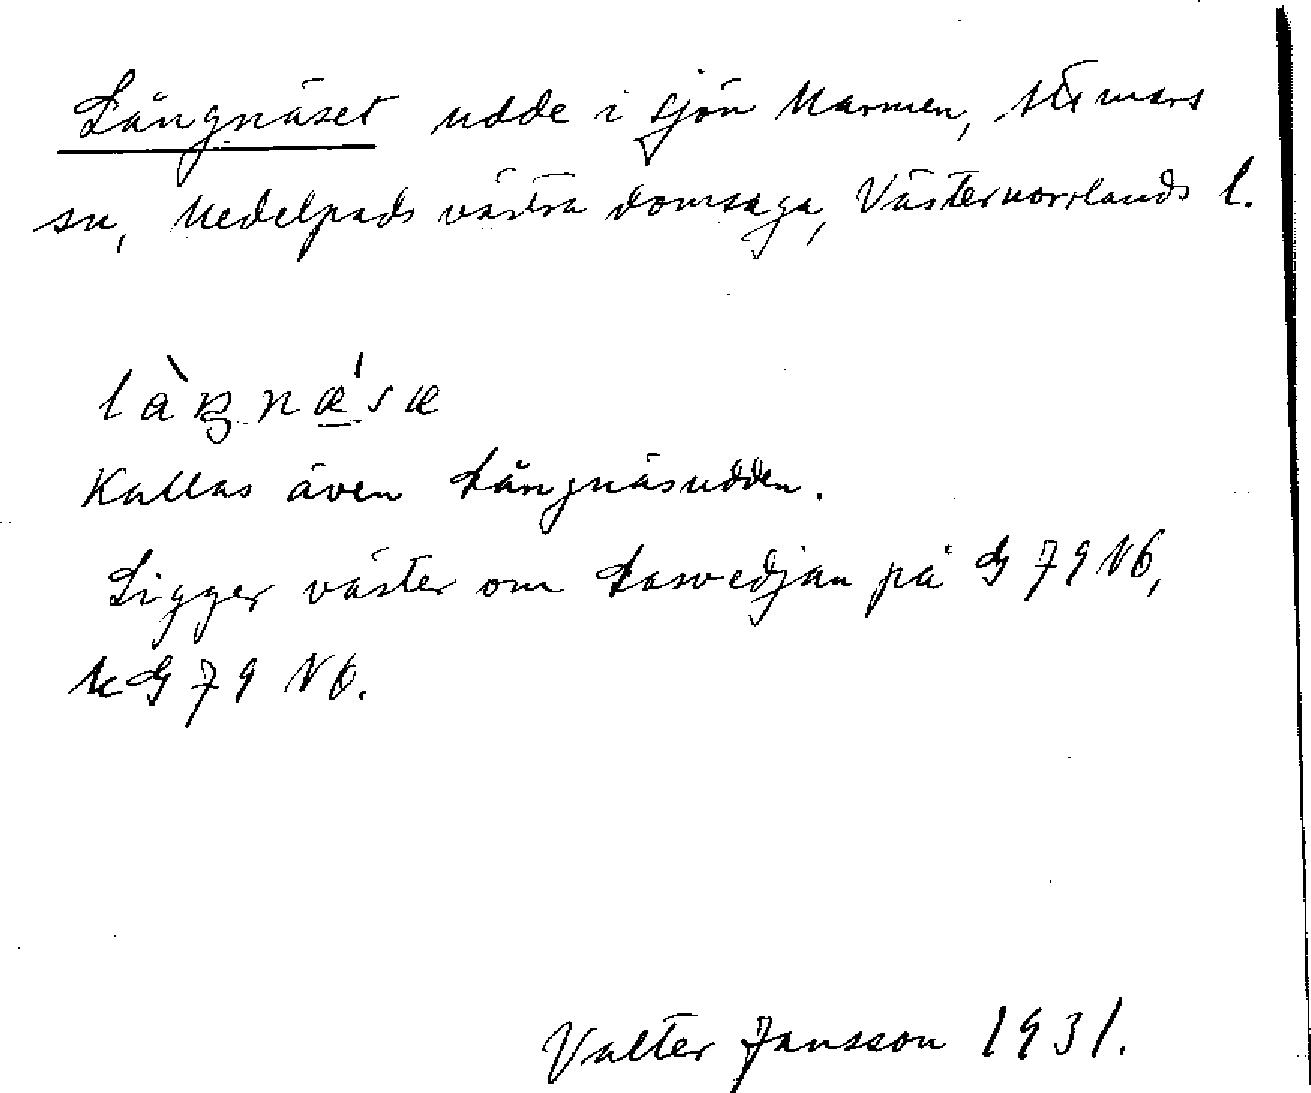 Långnäset udde i sjön Marmen, Attmars
sn, Medelpads västra domsaga, Västernorrlands l.
làŋnæ̲'sæ
Kallas även Långnäsudden.
Ligger väster om Lasvedjan på G 79 N6,
kG 79 N6.
Valter Jansson 1931.